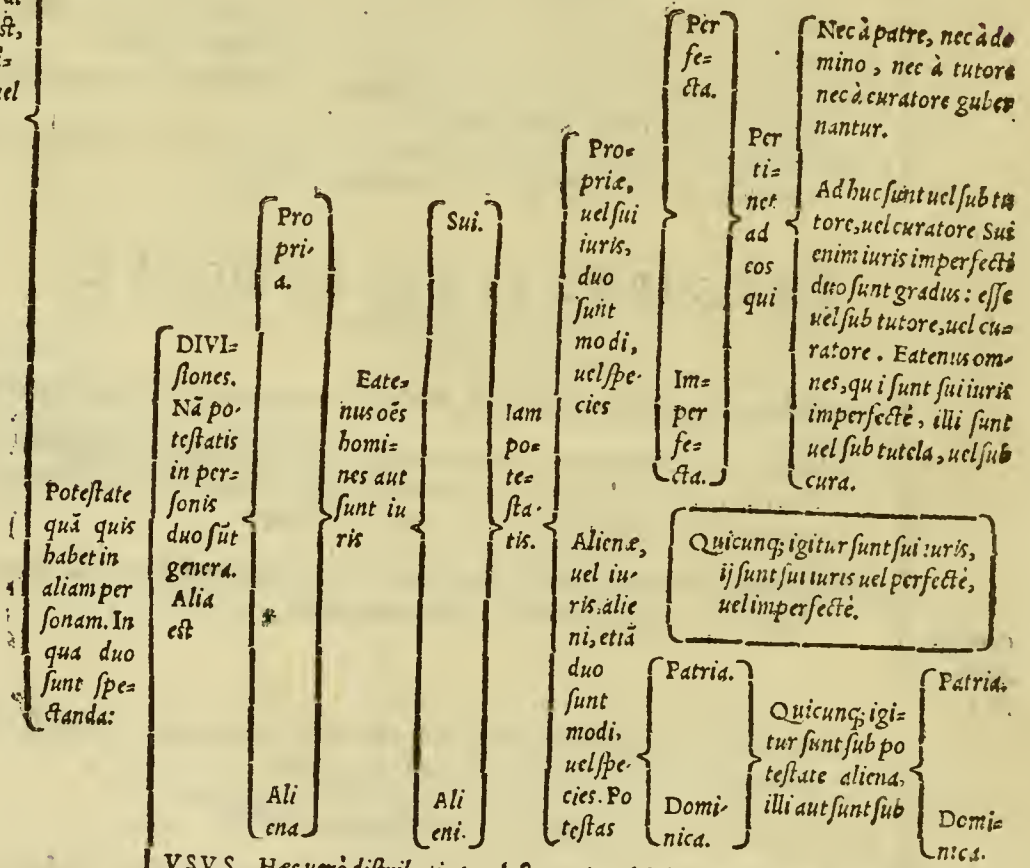 st,
uel
Potestate
quā quis
habet in
aliam per
sonam. In
qua duo
sunt spe=
ctanda:
DIVI=
siones.
Nā po-
testatis
in per=
sonis
duo sūt
genera.
Alia
est
Pro
pri-
a.
Ali
ena
Eate=
nus oēs
homi=
nes aut
sunt iu
ris
Sui.
Ali
eni.
Iam
po=
te=
sta-
tis.
Pro=
priæ,
uel sui
iuris,
duo
sunt
modi,
uel spe-
cies
Per
fe=
cta.
Im=
per
fe=
cta.
Per
ti=
net
ad
eos
qui
Nec à patre, nec à do
mino, nec à tutore
nec à curatore guber
nantur.
Ad huc sunt uel sub tu
tore, uel curatore Sui
enim iuris imperfecti
duo sunt gradus: esse
uel sub tutore, uel cu=
ratore. Eatenus om=
nes, qui sunt sui iuris
imperfectè, illi sunt
uel sub tutela, uel sub
cura.
Quicunq; igitur sunt sui iuris,
ij sunt sui iuris uel perfectè,
uel imperfectè.
Alienæ,
uel iu-
ris alie
ni, etiā
duo
sunt
modi,
uel spe-
cies. Po
testas
Patria.
Domi-
nica.
Quicunq; igi=
tur sunt sub po
testate aliena,
illi aut sunt sub
Patria.
Domi=
nica.
VSVS. Hæc uerò